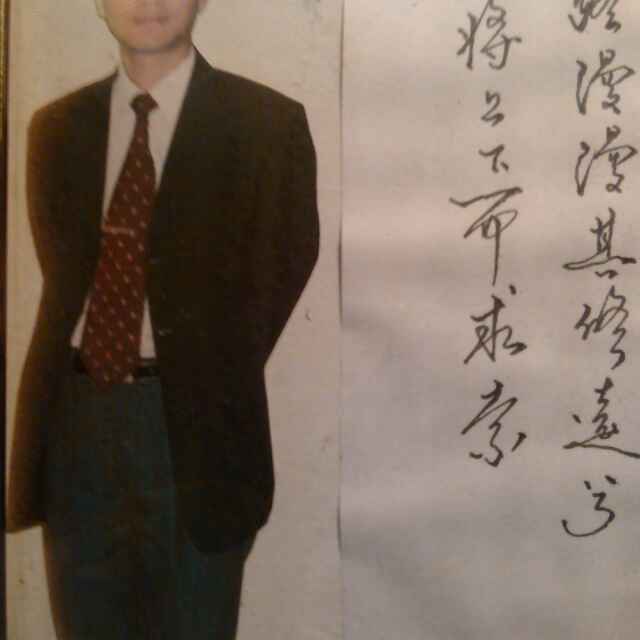 路漫漫其修遠兮
将上下而求索